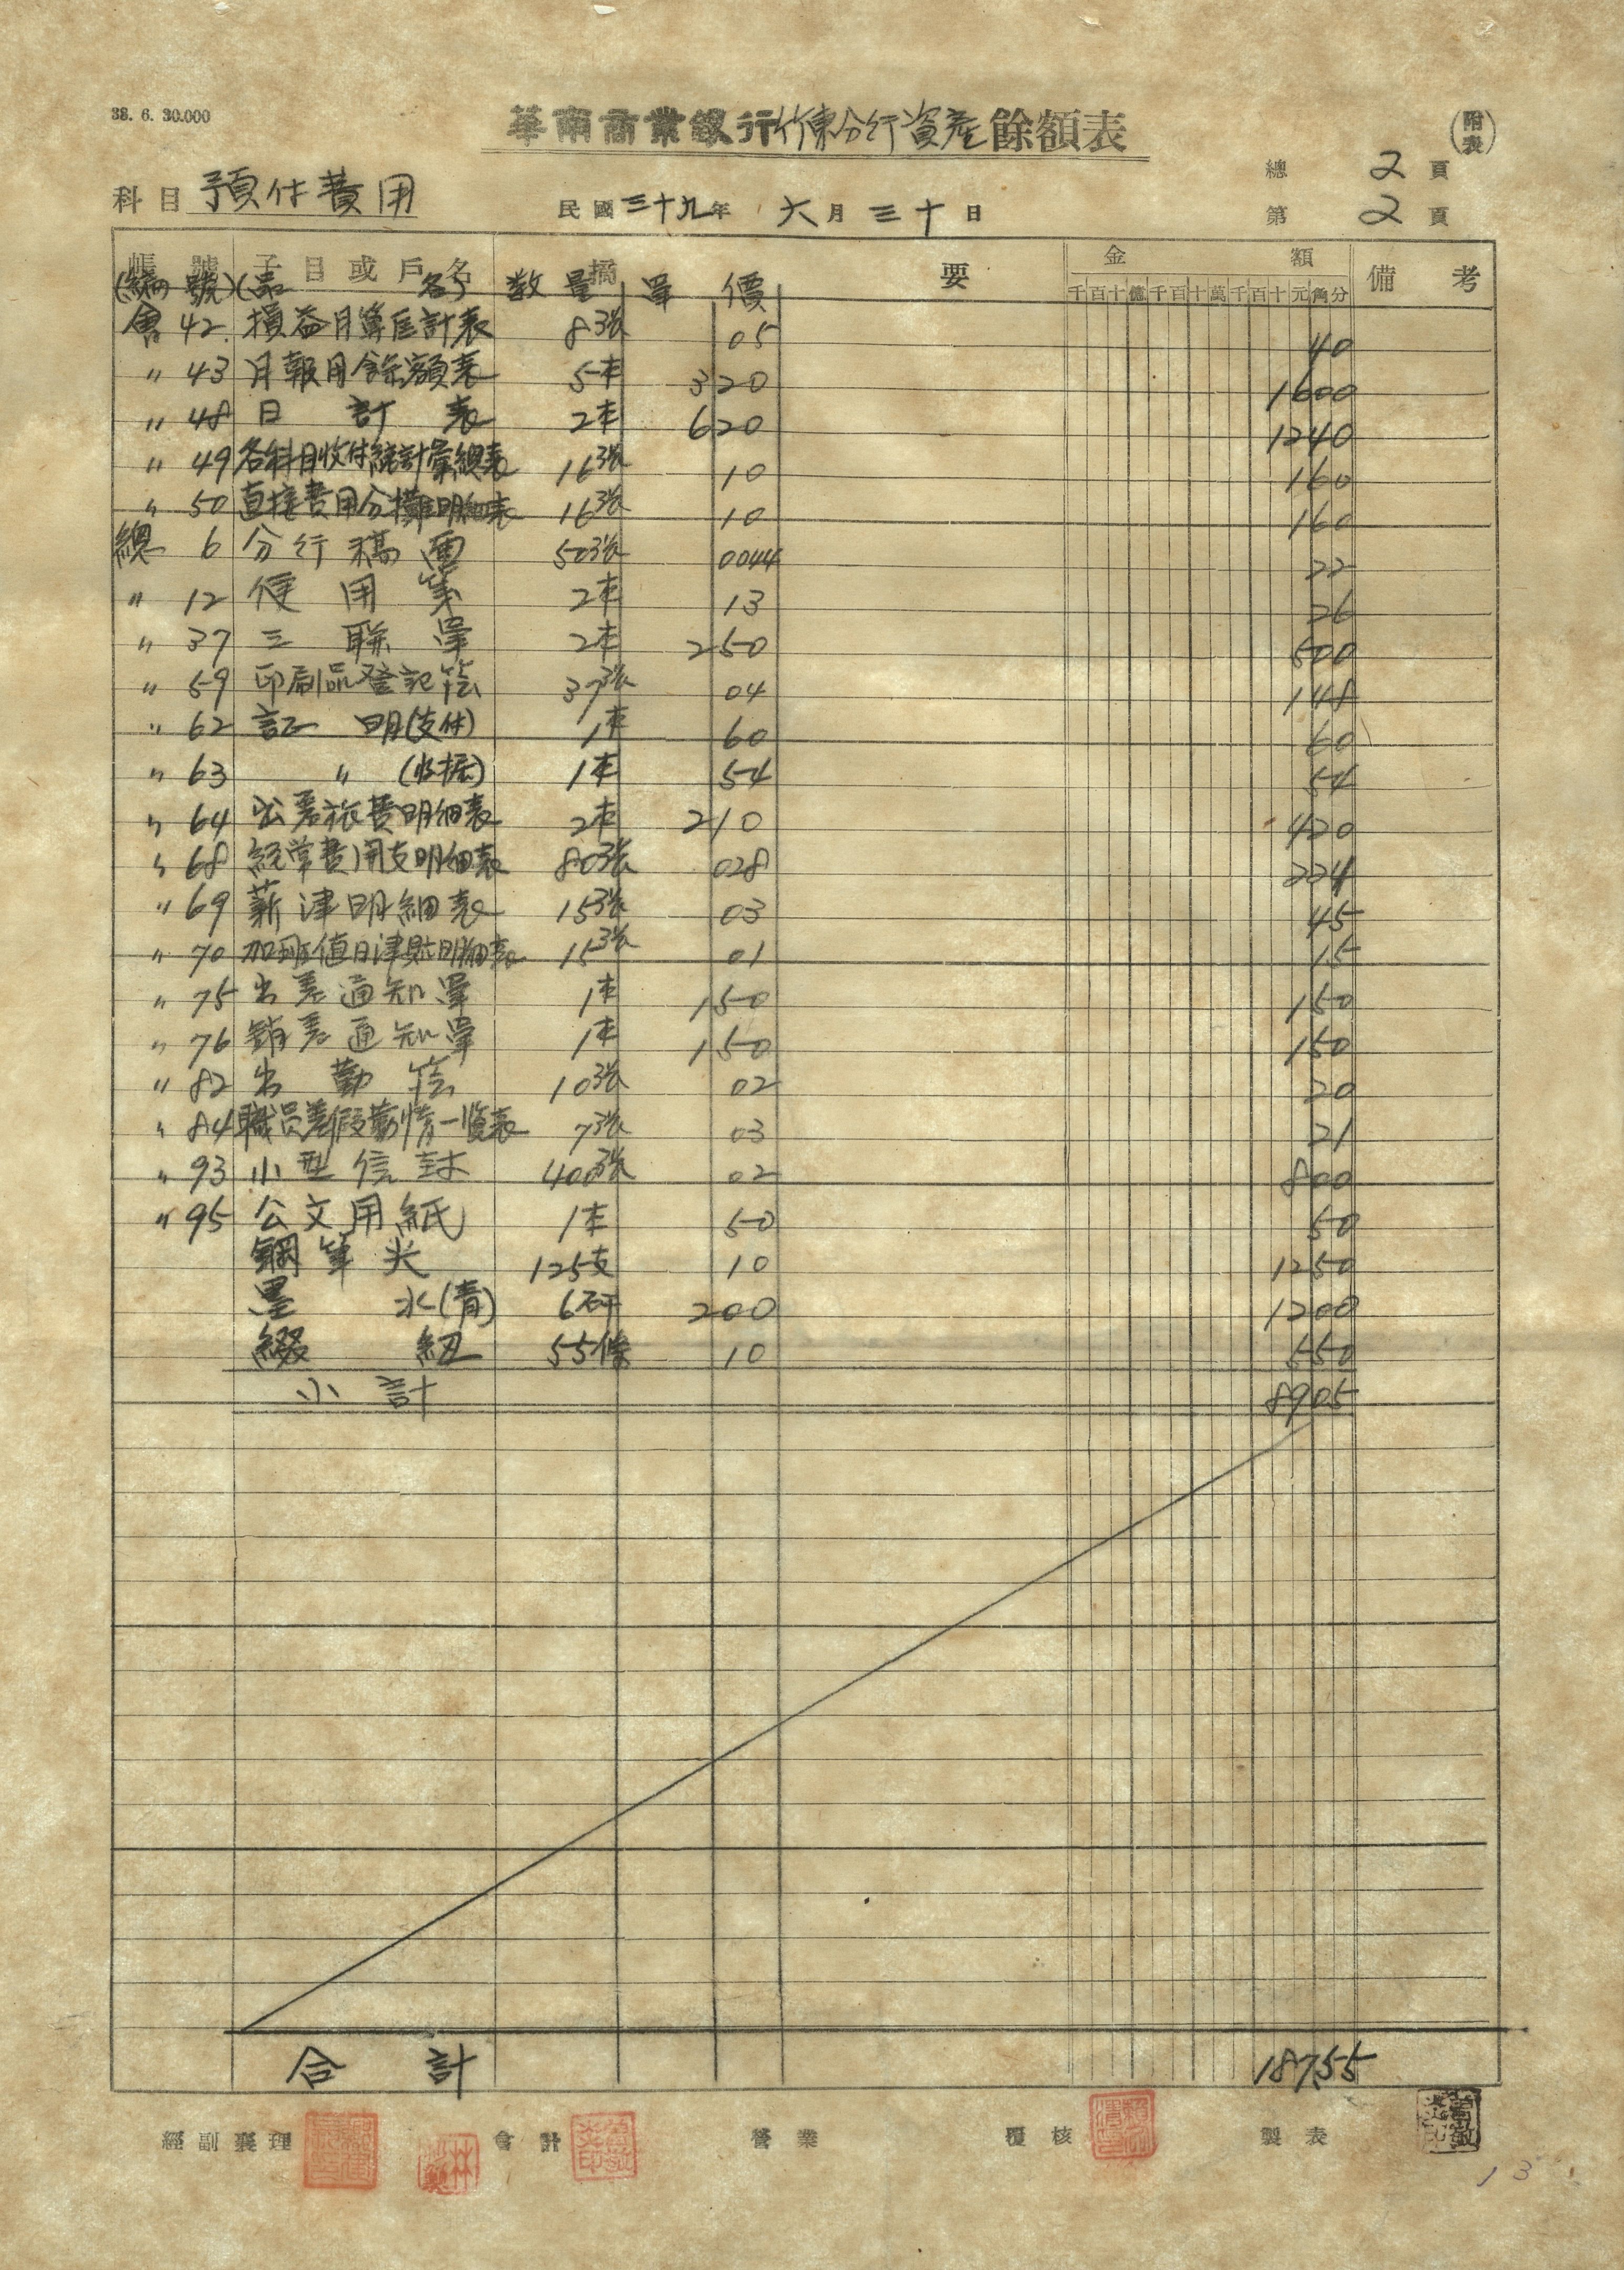 38. 6. 30.000
華南商業銀行竹東分行資產餘額表
(附表)
總 2 頁
科目 預付費用 民國三十九年 六月三十日 第 2 頁
帳號 子目或戶名 摘要 金額 備考
(編號) (品名) 数量 單價 千百十億千百十萬千百十元角分
會 42 損益月算后計表 8張 05 40
〃 43 月報用餘額表 5本 320 1600
〃 48 日計表 2本 620 1240
〃 49 各科目收付統計彙總表 16張 10 160
〃 50 直接費用分攤明細表 16張 10 160
總 6 分行稿面 50張 0044 22
〃 12 便用箋 2本 13 26
〃 37 三聯單 2本 250 500
〃 59 印刷品登記簿 37張 04 148
〃 62 証明(支付) 1本 60 60
〃 63 〃 (收据) 1本 54 54
〃 64 出差旅費明細表 2本 210 420
〃 68 經常費用支明細表 80張 028 224
〃 69 薪津明細表 15張 03 45
〃 70 加班值日津貼明細表 15張 01 15
〃 75 出差通知單 1本 150 150
〃 76 銷差通知單 1本 150 150
〃 82 出勤簿 10張 02 20
〃 84 職員差假勤惰一覧表 7張 03 21
〃 93 小型信封 400張 02 800
〃 95 公文用紙 1本 50 50
鋼筆尖 125支 10 1250
墨水(青) 6研 200 1200
綴紐 55條 10 550
小計 8905
合計 187.55
經副襄理 會計 營業 覆核 製表
13